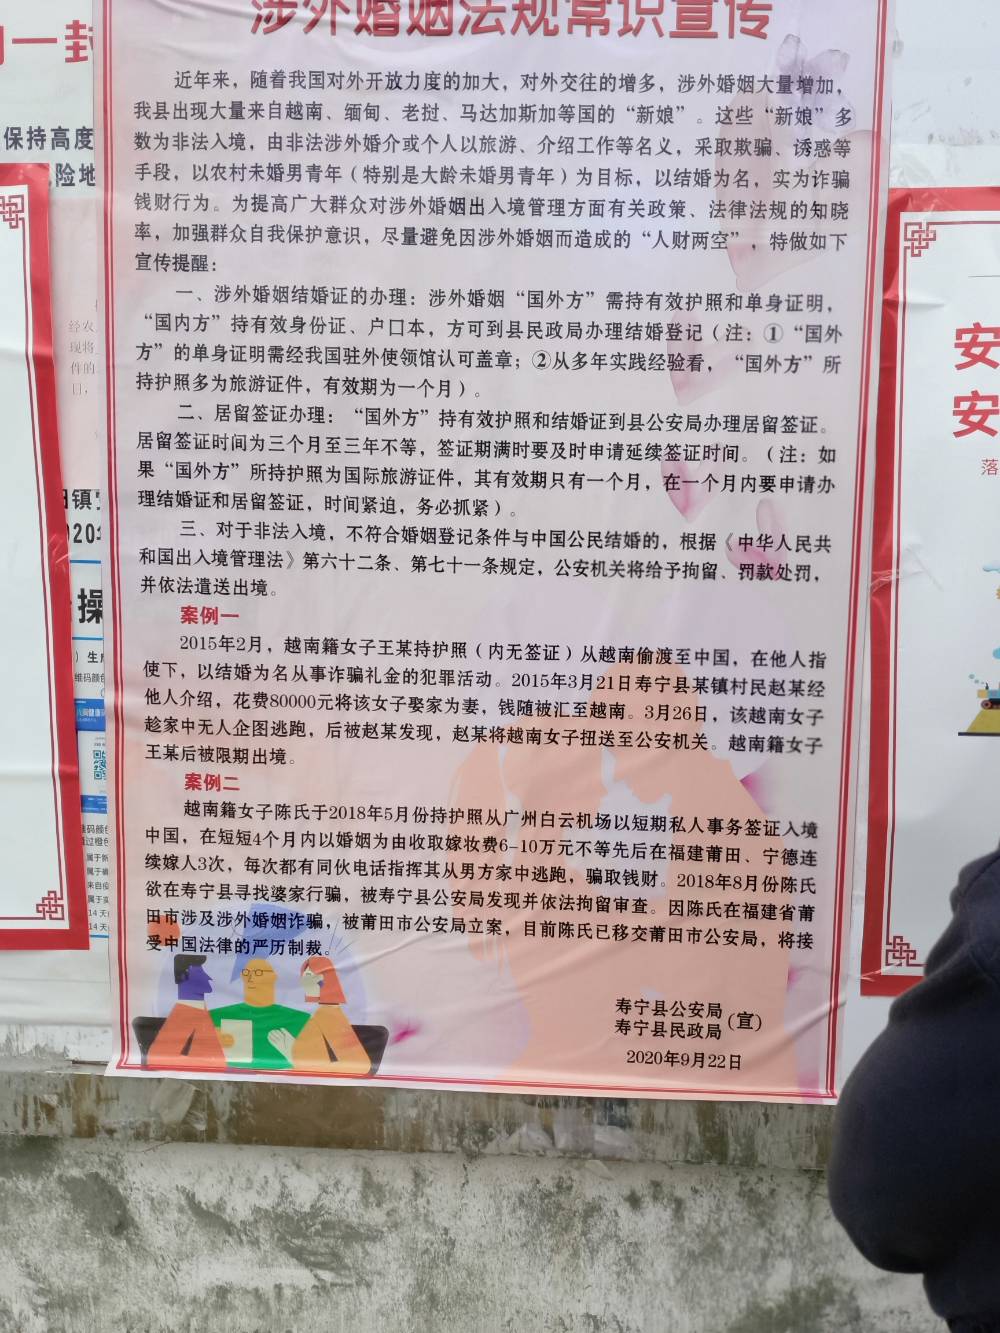 涉外婚姻法规常识宣传
近年来，随着我国对外开放力度的加大，对外交往的增多，涉外婚姻大量增加，
我县出现大量来自越南、缅甸、老挝、马达加斯加等国的“新娘”。这些“新娘”多
数为非法入境，由非法涉外婚介或个人以旅游、介绍工作等名义，采取欺骗、诱惑等
手段，以农村未婚男青年（特别是大龄未婚男青年）为目标，以结婚为名，实为诈骗
钱财行为。为提高广大群众对涉外婚姻出入境管理方面有关政策、法律法规的知晓
率，加强群众自我保护意识，尽量避免因涉外婚姻而造成的“人财两空”，特做如下
宣传提醒：
一、涉外婚姻结婚证的办理：涉外婚姻“国外方”需持有效护照和单身证明，
“国内方”持有效身份证、户口本，方可到县民政局办理结婚登记（注：①“国外
方”的单身证明需经我国驻外使领馆认可盖章；②从多年实践经验看，“国外方”所
持护照多为旅游证件，有效期为一个月）。
二、居留签证办理：“国外方”持有效护照和结婚证到县公安局办理居留签证。
居留签证时间为三个月至三年不等，签证期满时要及时申请延续签证时间。（注：如
果“国外方”所持护照为国际旅游证件，其有效期只有一个月，在一个月内要申请办
理结婚证和居留签证，时间紧迫，务必抓紧）。
三、对于非法入境，不符合婚姻登记条件与中国公民结婚的，根据《中华人民共
和国出入境管理法》第六十二条、第七十一条规定，公安机关将给予拘留、罚款处罚，
并依法遣送出境。
案例一
2015年2月，越南籍女子王某持护照（内无签证）从越南偷渡至中国，在他人指
使下，以结婚为名从事诈骗礼金的犯罪活动。2015年3月21日寿宁县某镇村民赵某经
他人介绍，花费80000元将该女子娶家为妻，钱随被汇至越南。3月26日，该越南女子
趁家中无人企图逃跑，后被赵某发现，赵某将越南女子扭送至公安机关。越南籍女子
王某后被限期出境。
案例二
越南籍女子陈氏于2018年5月份持护照从广州白云机场以短期私人事务签证入境
中国，在短短4个月内以婚姻为由收取嫁妆费6-10万元不等先后在福建莆田、宁德连
续嫁人3次，每次都有同伙电话指挥其从男方家中逃跑，骗取钱财。2018年8月份陈氏
欲在寿宁县寻找婆家行骗，被寿宁县公安局发现并依法拘留审查。因陈氏在福建省莆
田市涉及涉外婚姻诈骗，被莆田市公安局立案，目前陈氏已移交莆田市公安局，将接
受中国法律的严厉制裁。
寿宁县公安局
寿宁县民政局（宣）
2020年9月22日
一封
保持高度
险地
经农
现将
件的
日，
镇
020
操
生
维码颜色
14天
14天
安
安
落